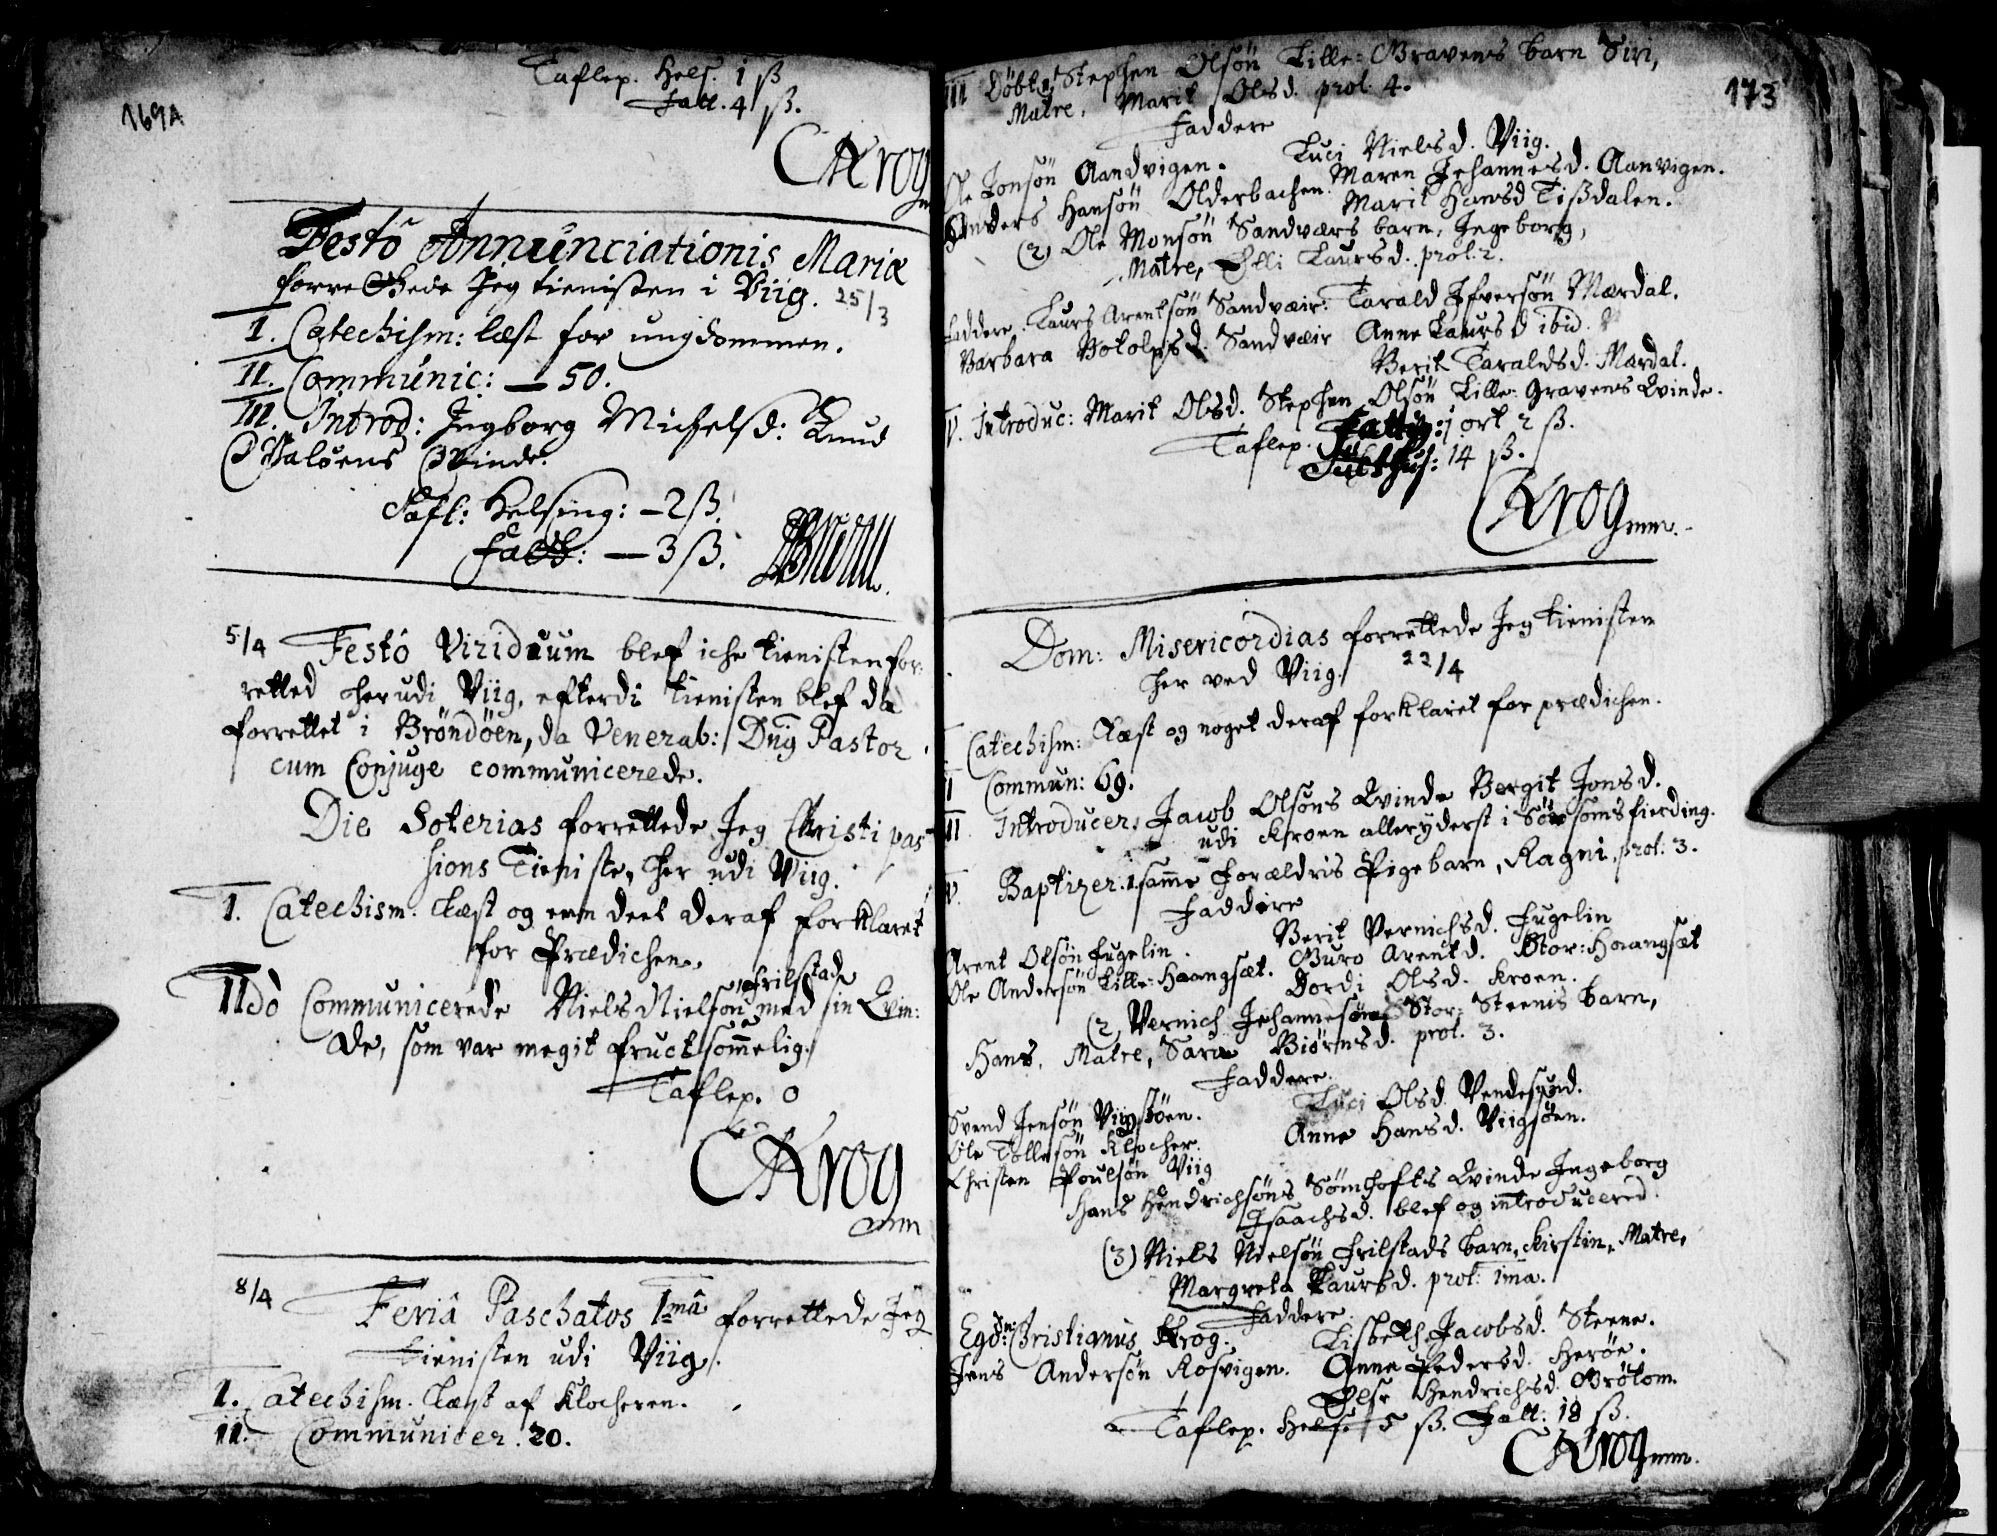 169A
Taflep. Hels. 1 ß
Fatt. 4 ß.
CKrog
mm
Festo Annunciationis Mariæ
forrettede Jeg tienisten i Viig. 25/3
I. Catechism: læst for ungdommen.
II. Communic: — 50.
III. Introd: Ingborg Michelsd: Knud
Hvaløens Qvinde.
Tafl: Helsing: — 2 ß.
Fatt: — 3 ß.
5/4 Festo Viridium blef iche tienisten for:
retted her udi Viig, efterdi tienisten blef da
forrettet i Brøndøen, da Venerab: Dnj Pastor
cum Conjuge communicerede.
Die Soterias forrettede Jeg Christi pas
sions Tieniste, her udi Viig.
I. Catechism. Læst og een deel deraf forklaret
for Prædichen.
Frilstade
IIdò Communicerede Niels Nielsøn med sin Qvin:
de, som var megit fructsommelig.
Taflep. 0
CKrog
mm
8/4 Feriâ Paschatos 1mâ forrettede Jeg
tienisten udi Viig.
I. Catechism. Læst af Klocheren.
II. Communicer. 20.
173
III Døbt 1, Stephen Olsøn Lille: Gravens barn Siri,
Matre, Marit Olsd. prol. 4.
Faddere
Ole Jonsøn Aandvigen. Luci Nielsd. Viig.
Anders Hansøn Olderbachen. Maren Johannesd. Aanvigen.
Marit Hansd Tißdalen.
(2) Ole Monsøn Sandværs barn, Ingeborg,
Matre, Elli Laursd. prol. 2.
Faddere. Laurs Arentsøn Sandvær: Tarald Ifversøn Mærdal.
Barbara Botolpsd. Sandvær Anne Laursd ibid.
Berit Taraldsd. Mærdal.
IV. Introduc: Marit Olsd. Stephen Olsøn Lille: Gravens Qvinde.
Taflep. Fattig: 1 ort 2 ß.
Tuchthus: 14 ß.
CKrog mm.
Dom: Misericordias forrettede Jeg tienisten
her ved Viig. 22/4
I Catechism: Læst og noget deraf forklaret for prædichen.
II Commun: 69.
III Introducer. Jacob Olsøns Qvinde Bergit Jonsd.
udi Kroen alleryderst i Sørsomsfierding.
IV. Baptizer. 1. samme Forældris Pigebarn, Ragni, prol: 3.
Faddere
Arent Olsøn Fugelin. Berit Vernichsd. Fugelin
Ole Andersøn Lille: Haangsæt. Guro Arentd. Stor: Haangsæt
Dordi Olsd. Kroen.
(2, Vernich Johannesøn Stor: Steens barn,
Hans, Matre, Sara Biørnsd. prol. 3.
Faddere.
Svend Jensøn Viigsøen. Luci Olsd. Vendesund.
Ole Tollesøn Klocher. Anne Hansd. Viigsøen.
Christen Poulsøn Viig
Hans Hendrichsøns Sømhofts Qvinde Ingeborg
Isaachsd. blef og introducered.
(3) Niels Nielsøn Frilstads barn, Kirstin, Matre,
Margreta Laursd. prol: 1ma.
Faddere
Ego Christianus Krog. Lisbeth Jacobsd. Steene.
Jens Andersøn Rosvigen. Anne Pedersd. Herøe.
Else Hendrichsd. Grøtom
Taflep. Hels. 5 ß. Fatt: 18 ß.
CKrog mm.